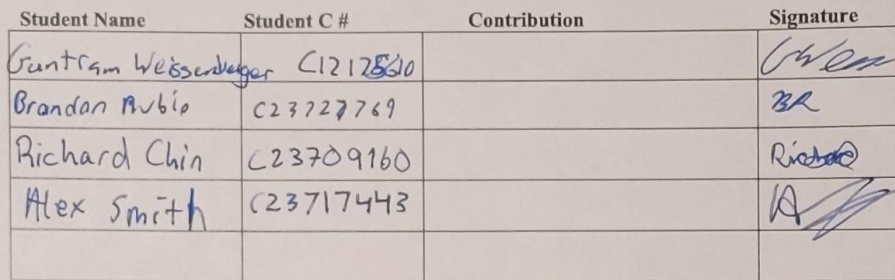 Student Name Student C # Contribution Signature
Guntram Weissenberger C12125610
Brandon Rubio C23727769 BR
Richard Chin C23709160 Richard
Alex Smith C23717443